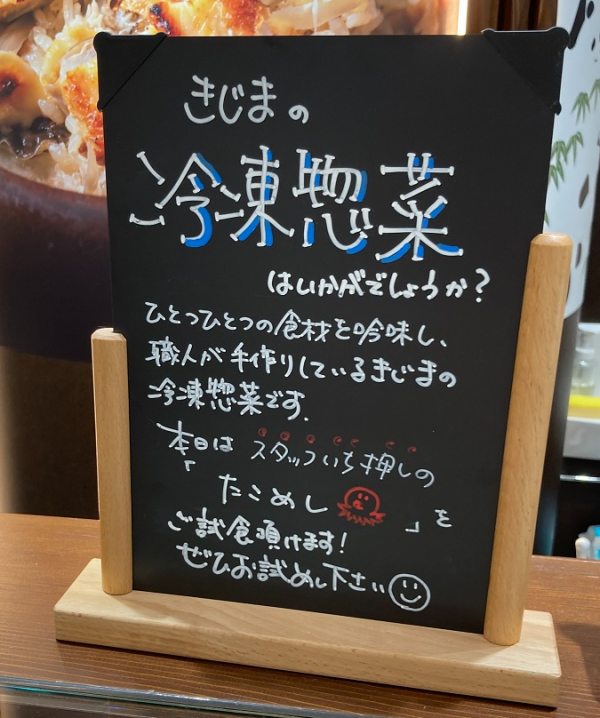 きじまの
冷凍惣菜
はいかがでしょうか?
ひとつひとつの食材を吟味し、
職人が手作りしているきじまの
冷凍惣菜です.
本日は スタッフいち押しの
「たこめし 」を
ご試食頂けます!
ぜひお試めし下さい